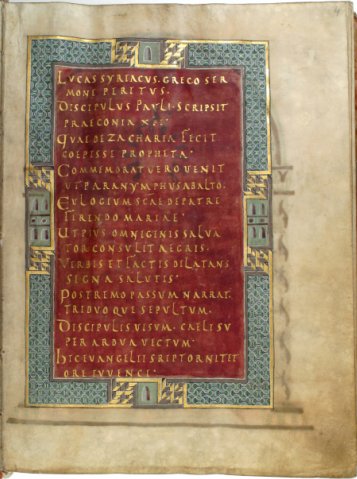 LUCAS SYRIACUS. GRECO SER
MONE PERITUS.
DISCIPULUS PAULI. SCRIPSIT
PRAECONIA XPI.
QUAE DE ZACHARIA FECIT
COEPISSE PROPHETA.
COMMEMORAT VERO VENIT
UT PARANYMPHUS AB ALTO.
EULOGIUM SCAE DE PATRE
FERENDO MARIAE.
UT PIUS OMNIGENIS SALVA
TOR CONSULIT AEGRIS.
VERBIS ET FACTIS DILATANS
SEGNA SALUTIS.
POSTREMO PASSUM NARRAT.
TRIDUOQUE SEPULTUM.
DISCIPULIS VISUM. CAELI SU
PER ARDUA VECTUM.
HIC EVANGELII SRIPTOR NITET
ORE IUVENCI.